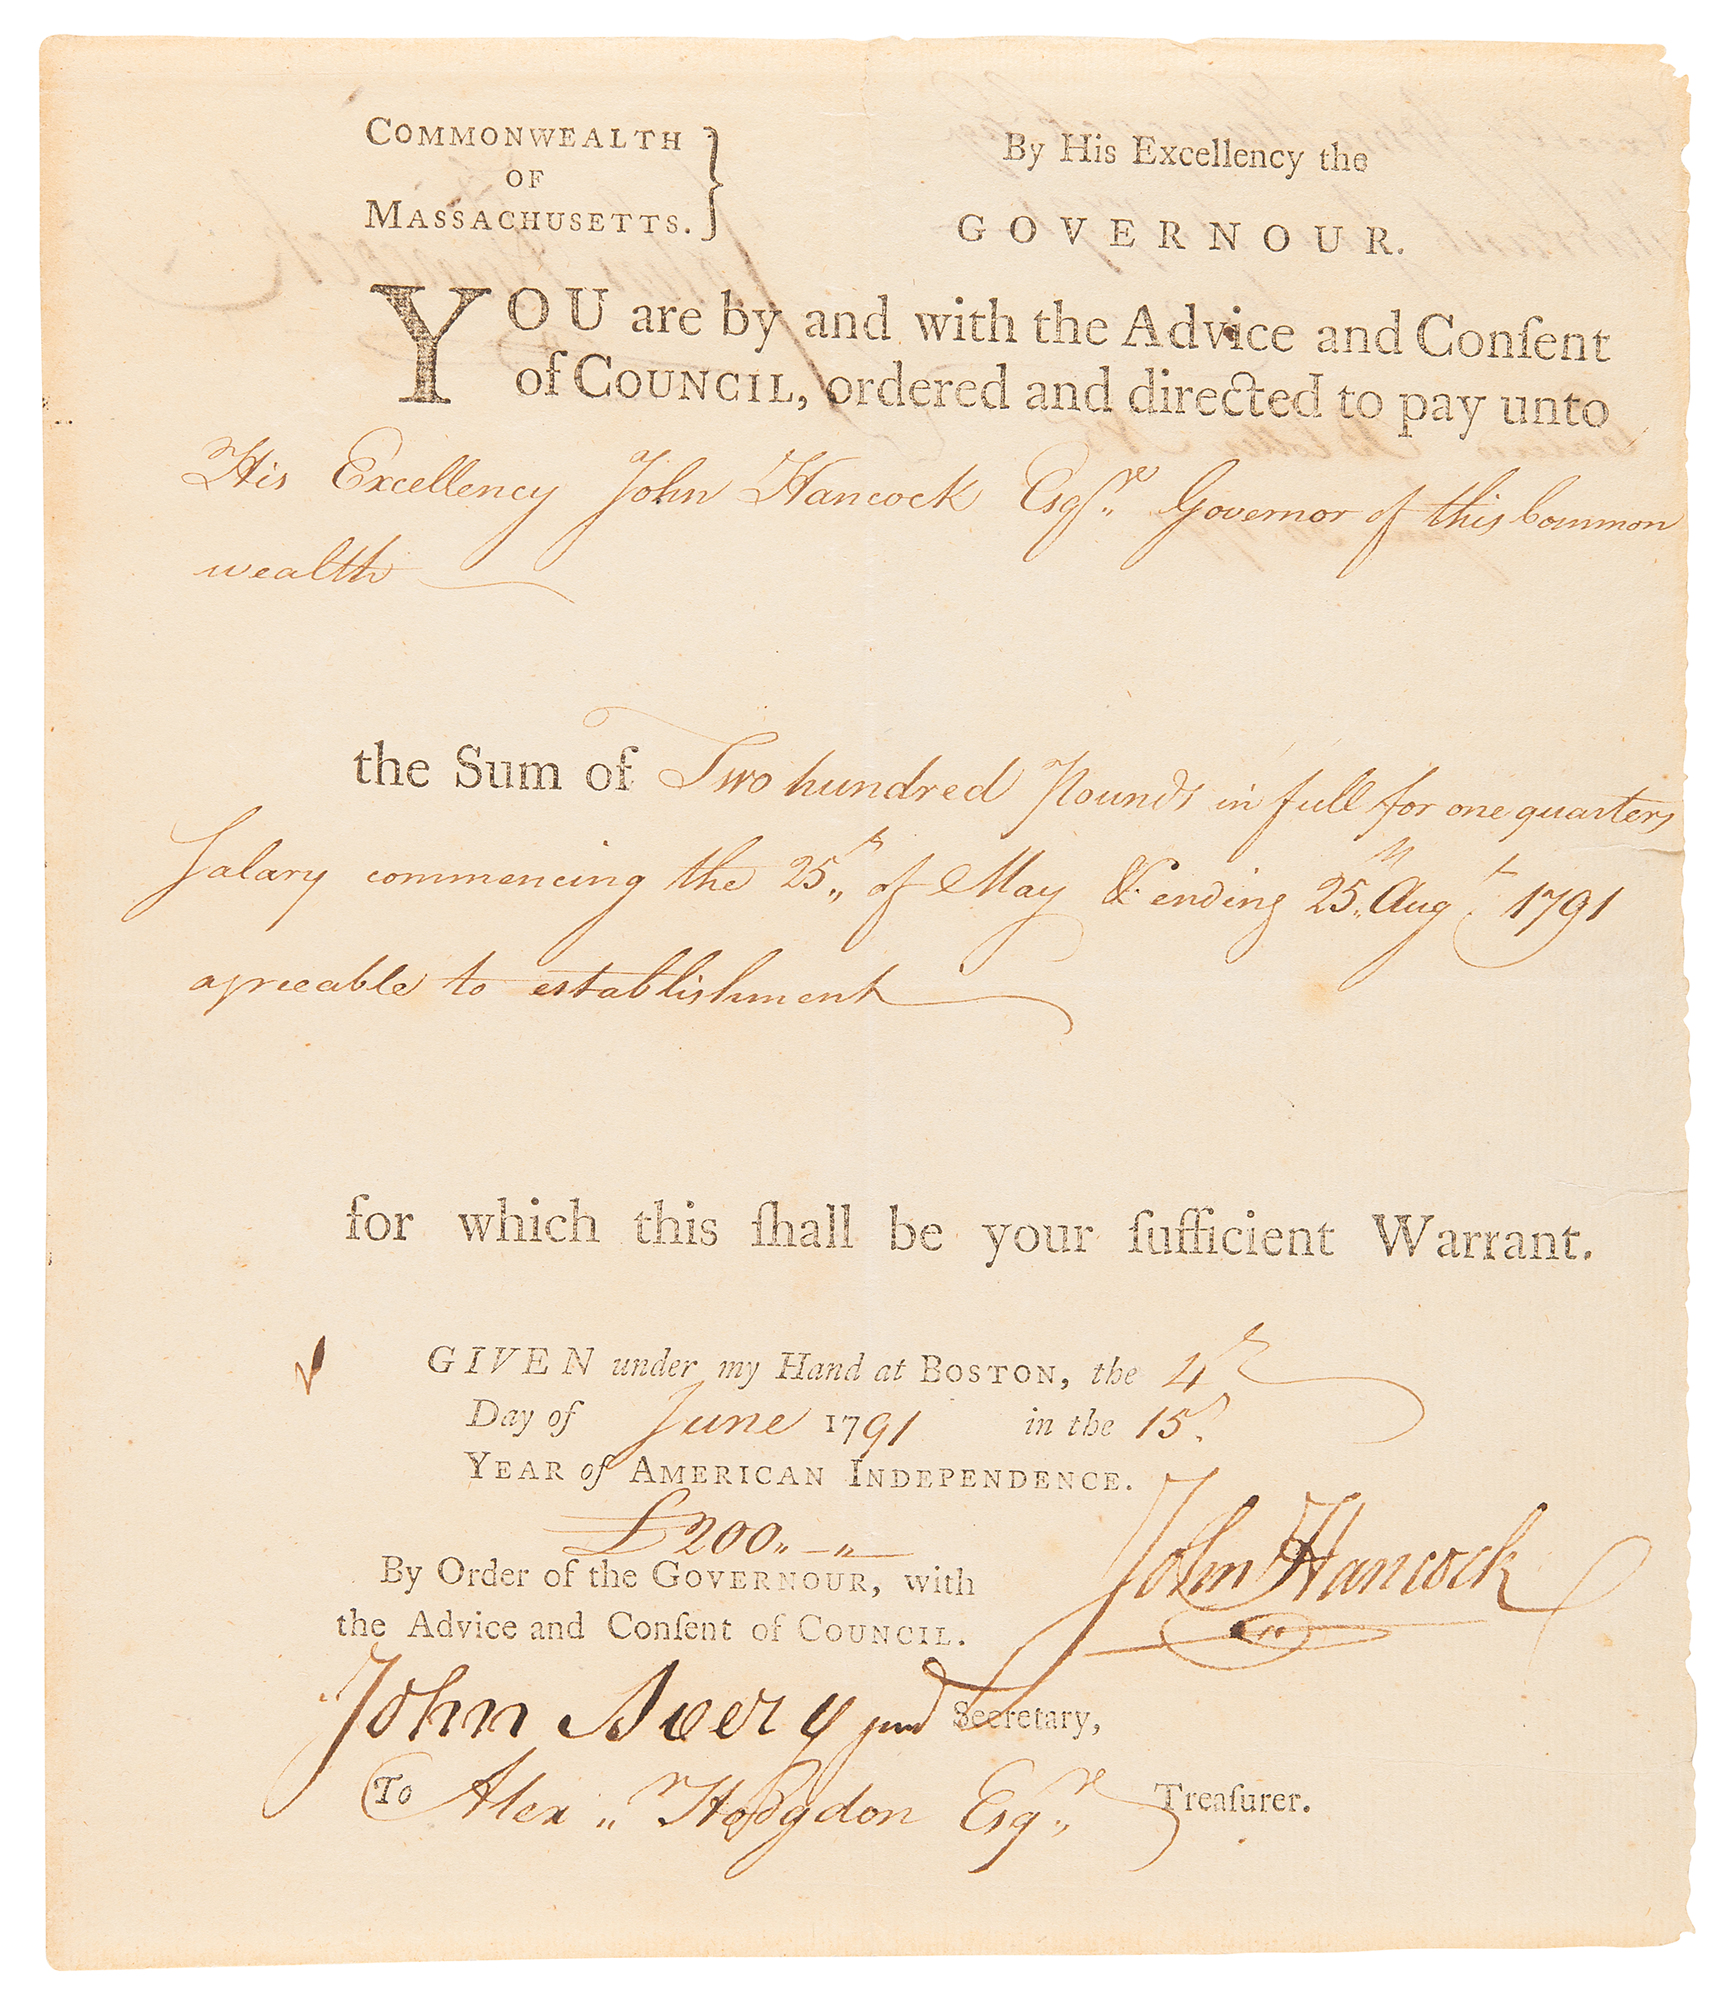 COMMONWEALTH
OF
MASSACHUSETTS.
By His Excellency the
GOVERNOUR.
YOU are by and with the Advice and Conſent
of COUNCIL, ordered and directed to pay unto
His Excellency John Hancock Esqre. Governor of this Common
wealth
the Sum of Two hundred Pounds in full for one quarters
Salary commencing the 25th. of May & ending 25th. Augt. 1791
agreeable to establishment
for which this ſhall be your ſufficient Warrant.
GIVEN under my Hand at BOSTON, the 4th
Day of June 1791 in the 15th.
YEAR of AMERICAN INDEPENDENCE.
£200.,—,,
By Order of the GOVERNOUR, with
the Advice and Conſent of COUNCIL.
John Hancock
John Avery junr Secretary,
To Alexr. Hodgdon Esqre. Treaſurer.